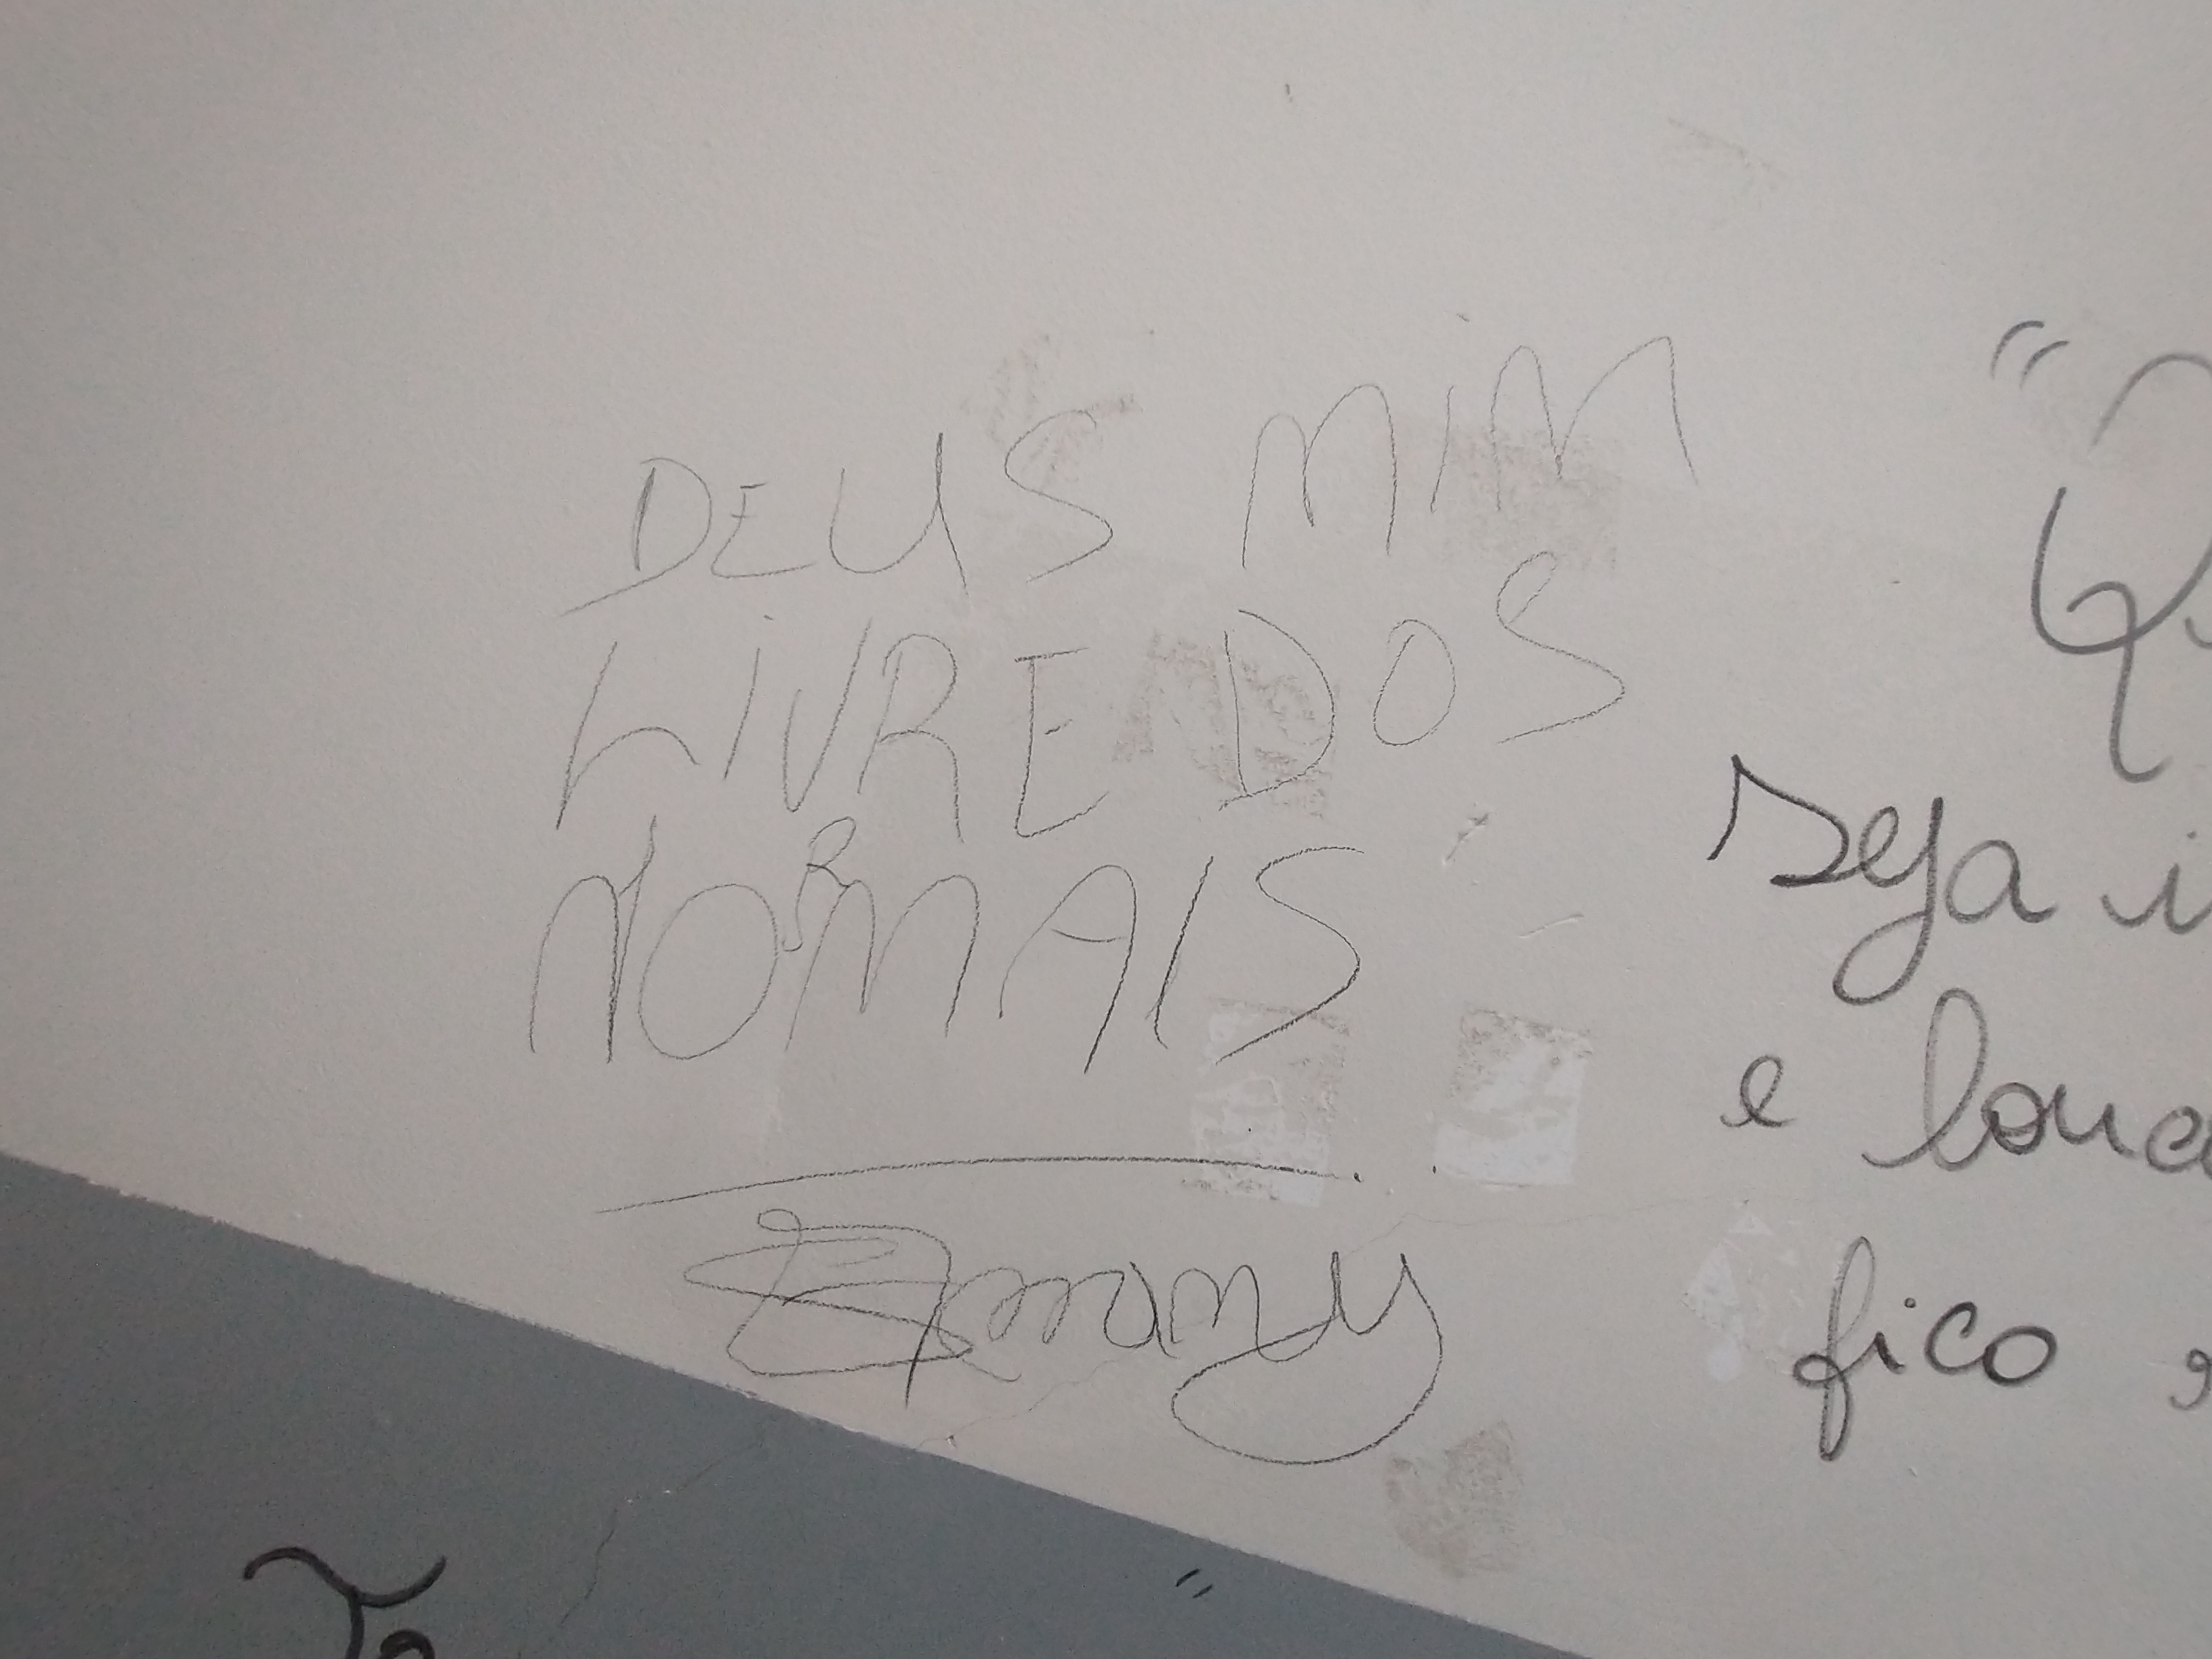 DEUS MIM
LIVRE DOS
NORMAIS
Ermany
"Q
seja i
e louc
fico
To
"